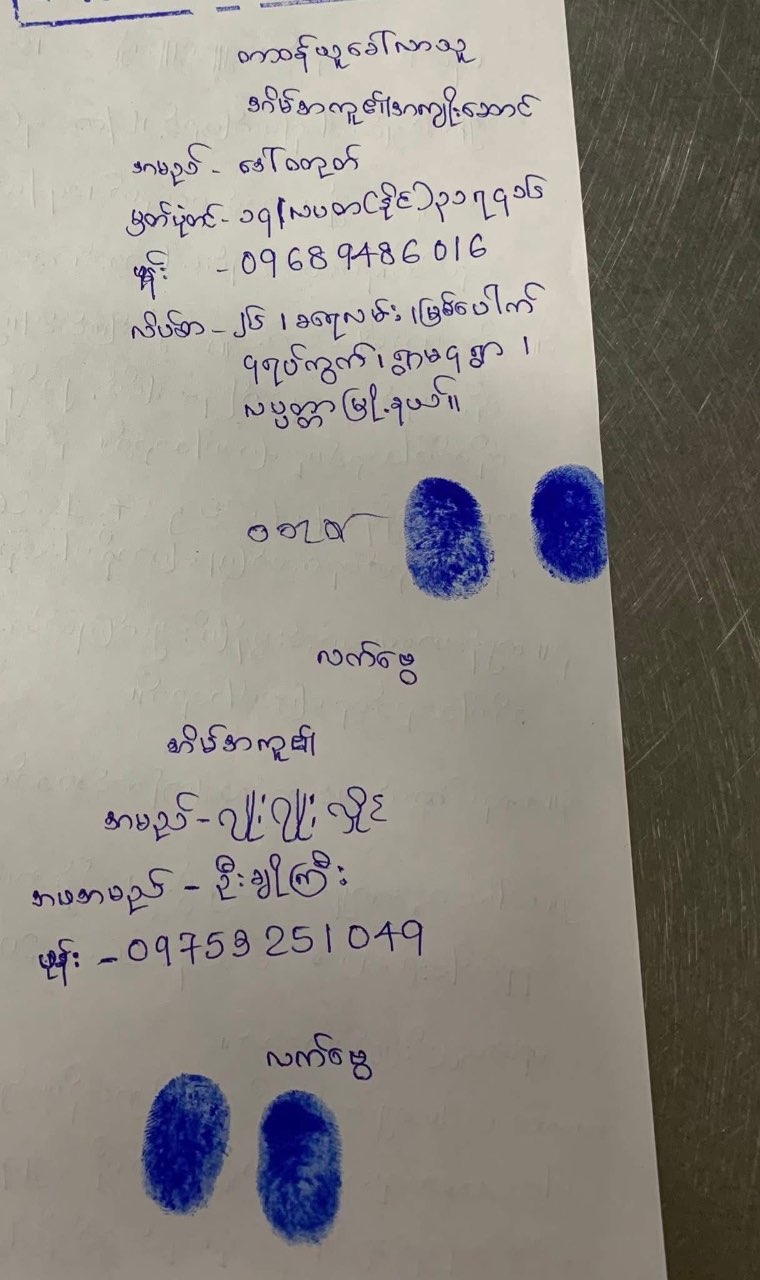 တာဝန်ယူခေါ်လာသူ
အိမ်အကူ၏အကျိုးဆောင်
အမည် - ဒေါ်ဝတုတ်
မှတ်ပုံတင် - ၁၄/လပတ(နိုင်)၃၁၇၄၁၆
ဖုန်း - 09689486016
လိပ်စာ - ၂၆ ၊ ခရေလမ်း ၊ မြစ်ပေါက်
ရပ်ကွက် ၊ ရွာမ ရွာ ၊
လပွတ္တာမြို့နယ်။
လက်ဗွေ
အိမ်အကူ၏
အမည် - ဖြူးဖြူးလှိုင်
အဖအမည် - ဦးချိုကြီး
ဖုန်း - 09753251049
လက်ဗွေ